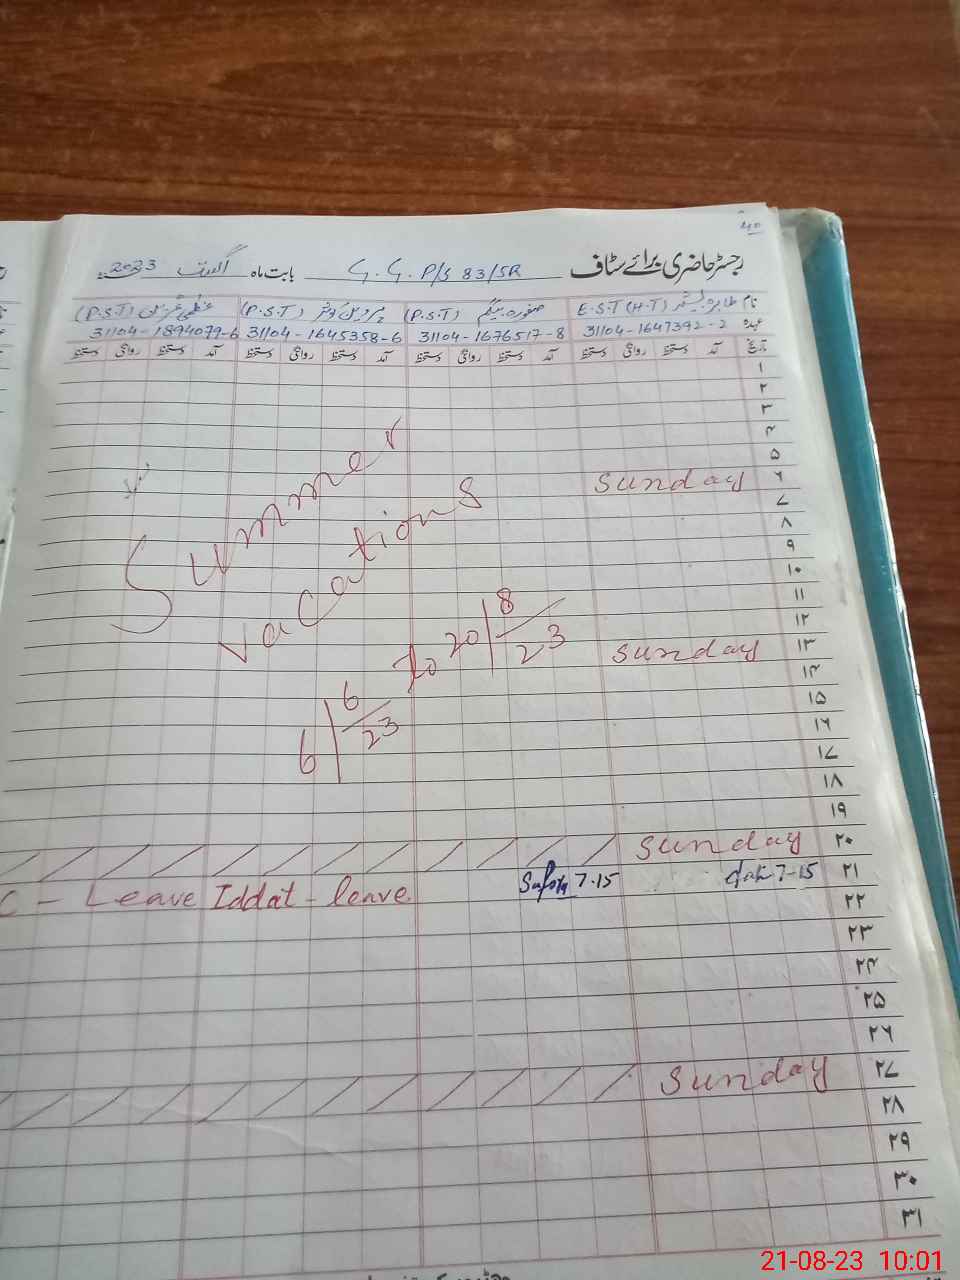 ۴۰
رجسٹر حاضری برائے سٹاف G.G. P/S 83/5R بابت ماہ اگست 2023ء
نام طاہرہ بشیر E.S.T (H.T) صفورہ بیگم (P.S.T) پروین کوثر (P.S.T) عظمیٰ (P.S.T)
عہدہ 31104-1647392-2 31104-1676517-8 31104-1645358-6 31104-1894079-6
تاریخ آمد دستخط روانگی دستخط آمد دستخط روانگی دستخط آمد دستخط روانگی دستخط آمد دستخط روانگی دستخط
۱
۲
۳
۴
۵
۶ Sunday
۷
۸
۹
۱۰
۱۱
۱۲
۱۳ Sunday
۱۴
۱۵
۱۶
۱۷
۱۸
۱۹
۲۰ Sunday
۲۱ 7-15 7.15 Iddat - leave C - Leave
۲۲
۲۳
۲۴
۲۵
۲۶
۲۷ Sunday
۲۸
۲۹
۳۰
۳۱
Summer
vacations
6/6/23 to 20/8/23
21-08-23 10:01